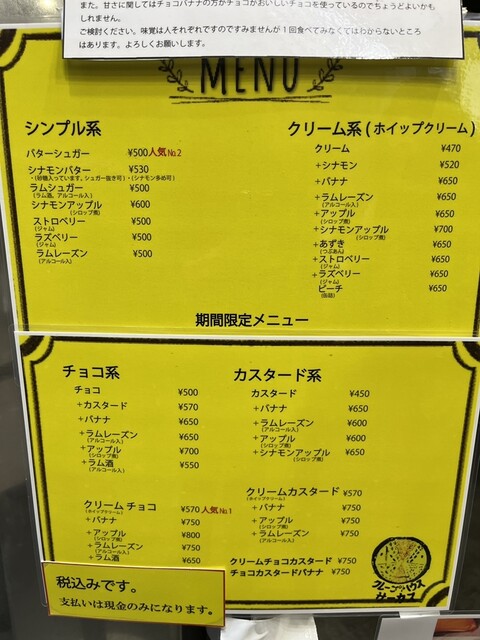 また。甘さに関してはチョコバナナの方がチョコがおいしいチョコを使っているのでちょうどよいかも
しれません。
ご検討ください。味覚は人それぞれですのですみませんが1回食べてみなくてはわからないところ
はあります。よろしくお願いします。
MENU
シンプル系
バターシュガー ¥500 人気No.2
シナモンバター ¥530
・(砂糖入っています。シュガー抜き可)・(シナモン多め可)
ラムシュガー ¥500
(ラム酒。アルコール入)
シナモンアップル ¥600
(シロップ煮)
ストロベリー ¥500
(ジャム)
ラズベリー ¥500
(ジャム)
ラムレーズン ¥500
(アルコール入)
クリーム系(ホイップクリーム)
クリーム ¥470
+シナモン ¥520
+バナナ ¥650
+ラムレーズン ¥650
(アルコール入)
+アップル ¥650
(シロップ煮)
+シナモンアップル ¥700
(シロップ煮)
+あずき ¥650
(つぶあん)
+ストロベリー ¥650
(ジャム)
+ラズベリー ¥650
(ジャム)
ピーチ ¥650
(缶詰)
期間限定メニュー
チョコ系
チョコ ¥500
+カスタード ¥570
+バナナ ¥650
+ラムレーズン ¥650
(アルコール入)
+アップル ¥700
(シロップ煮)
+ラム酒 ¥550
(アルコール入)
クリームチョコ ¥570 人気No.1
(ホイップクリーム)
+バナナ ¥750
+アップル ¥800
(シロップ煮)
+ラムレーズン ¥750
(アルコール入)
+ラム酒 ¥650
カスタード系
カスタード ¥450
+バナナ ¥650
+ラムレーズン ¥600
(アルコール入)
+アップル ¥600
(シロップ煮)
+シナモンアップル ¥650
(シロップ煮)
クリームカスタード ¥570
(ホイップクリーム)
+バナナ ¥750
+アップル ¥750
(シロップ煮)
+ラムレーズン ¥750
(アルコール入)
クリームチョコカスタード ¥750
チョコカスタードバナナ ¥750
クレープハウス
サーカス
税込みです。
支払いは現金のみになります。